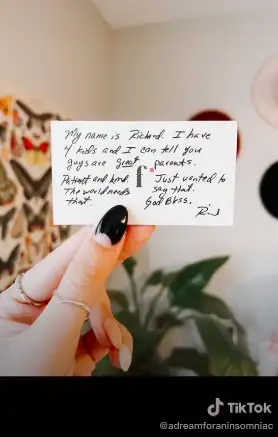 My name is Richard. I have
4 kids and I can tell you
guys are great parents.
Patient and kind. f Just wanted to
The world needs say that.
that. God Bless.
TikTok
@adreamforaninsomniac